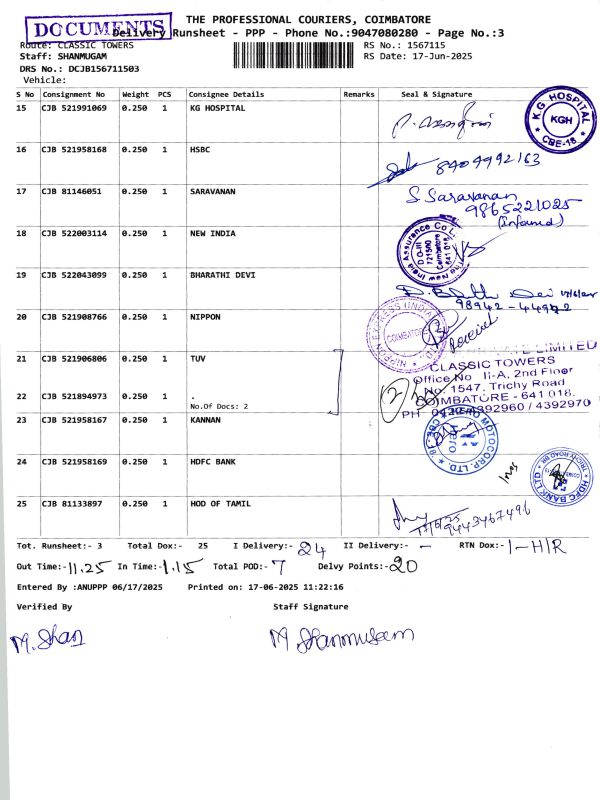 DOCUMENTS
THE PROFESSIONAL COURIERS, COIMBATORE
Delivery Runsheet - PPP - Phone No.:9047080280 - Page No.:3
Route: CLASSIC TOWERS
RS No.: 1567115
Staff: SHANMUGAM
RS Date: 17-Jun-2025
DRS No.: DCJB156711503
Vehicle:
S No Consignment No Weight PCS Consignee Details Remarks Seal & Signature
15 CJB 521991069 0.250 1 KG HOSPITAL
K.G. HOSPITAL
KGH
CBE-18
16 CJB 521958168 0.250 1 HSBC
8904992163
17 CJB 81146051 0.250 1 SARAVANAN
S Saravanan
9865221025
(Informed)
18 CJB 522003114 0.250 1 NEW INDIA
The New India Assurance Co L
D O-III
721500
Coimbatore
641 018
19 CJB 522043099 0.250 1 BHARATHI DEVI
98942-44972
20 CJB 521908766 0.250 1 NIPPON
NIPPON EXPRESS (INDIA)
COIMBATORE
21 CJB 521906806 0.250 1 TUV
LIMITED
CLASSIC TOWERS
Office No II-A, 2nd Floor
No. 1547, Trichy Road
22 CJB 521894973 0.250 1 .
No.Of Docs: 2
COIMBATORE - 641 018.
4392960 / 4392970
23 CJB 521958167 0.250 1 KANNAN
HERO MOTOCORP LTD.
CBE-18
Hero
24 CJB 521958169 0.250 1 HDFC BANK
HDFC BANK LTD
25 CJB 81133897 0.250 1 HOD OF TAMIL
9443467496
Tot. Runsheet:- 3 Total Dox:- 25 I Delivery:- 24 II Delivery:- - RTN Dox:- 1-H/R
Out Time:- 11.25 In Time:- 1.15 Total POD:- 7 Delvy Points:- 20
Entered By :ANUPPP 06/17/2025 Printed on: 17-06-2025 11:22:16
Verified By Staff Signature
M. Shan M Shanmugam